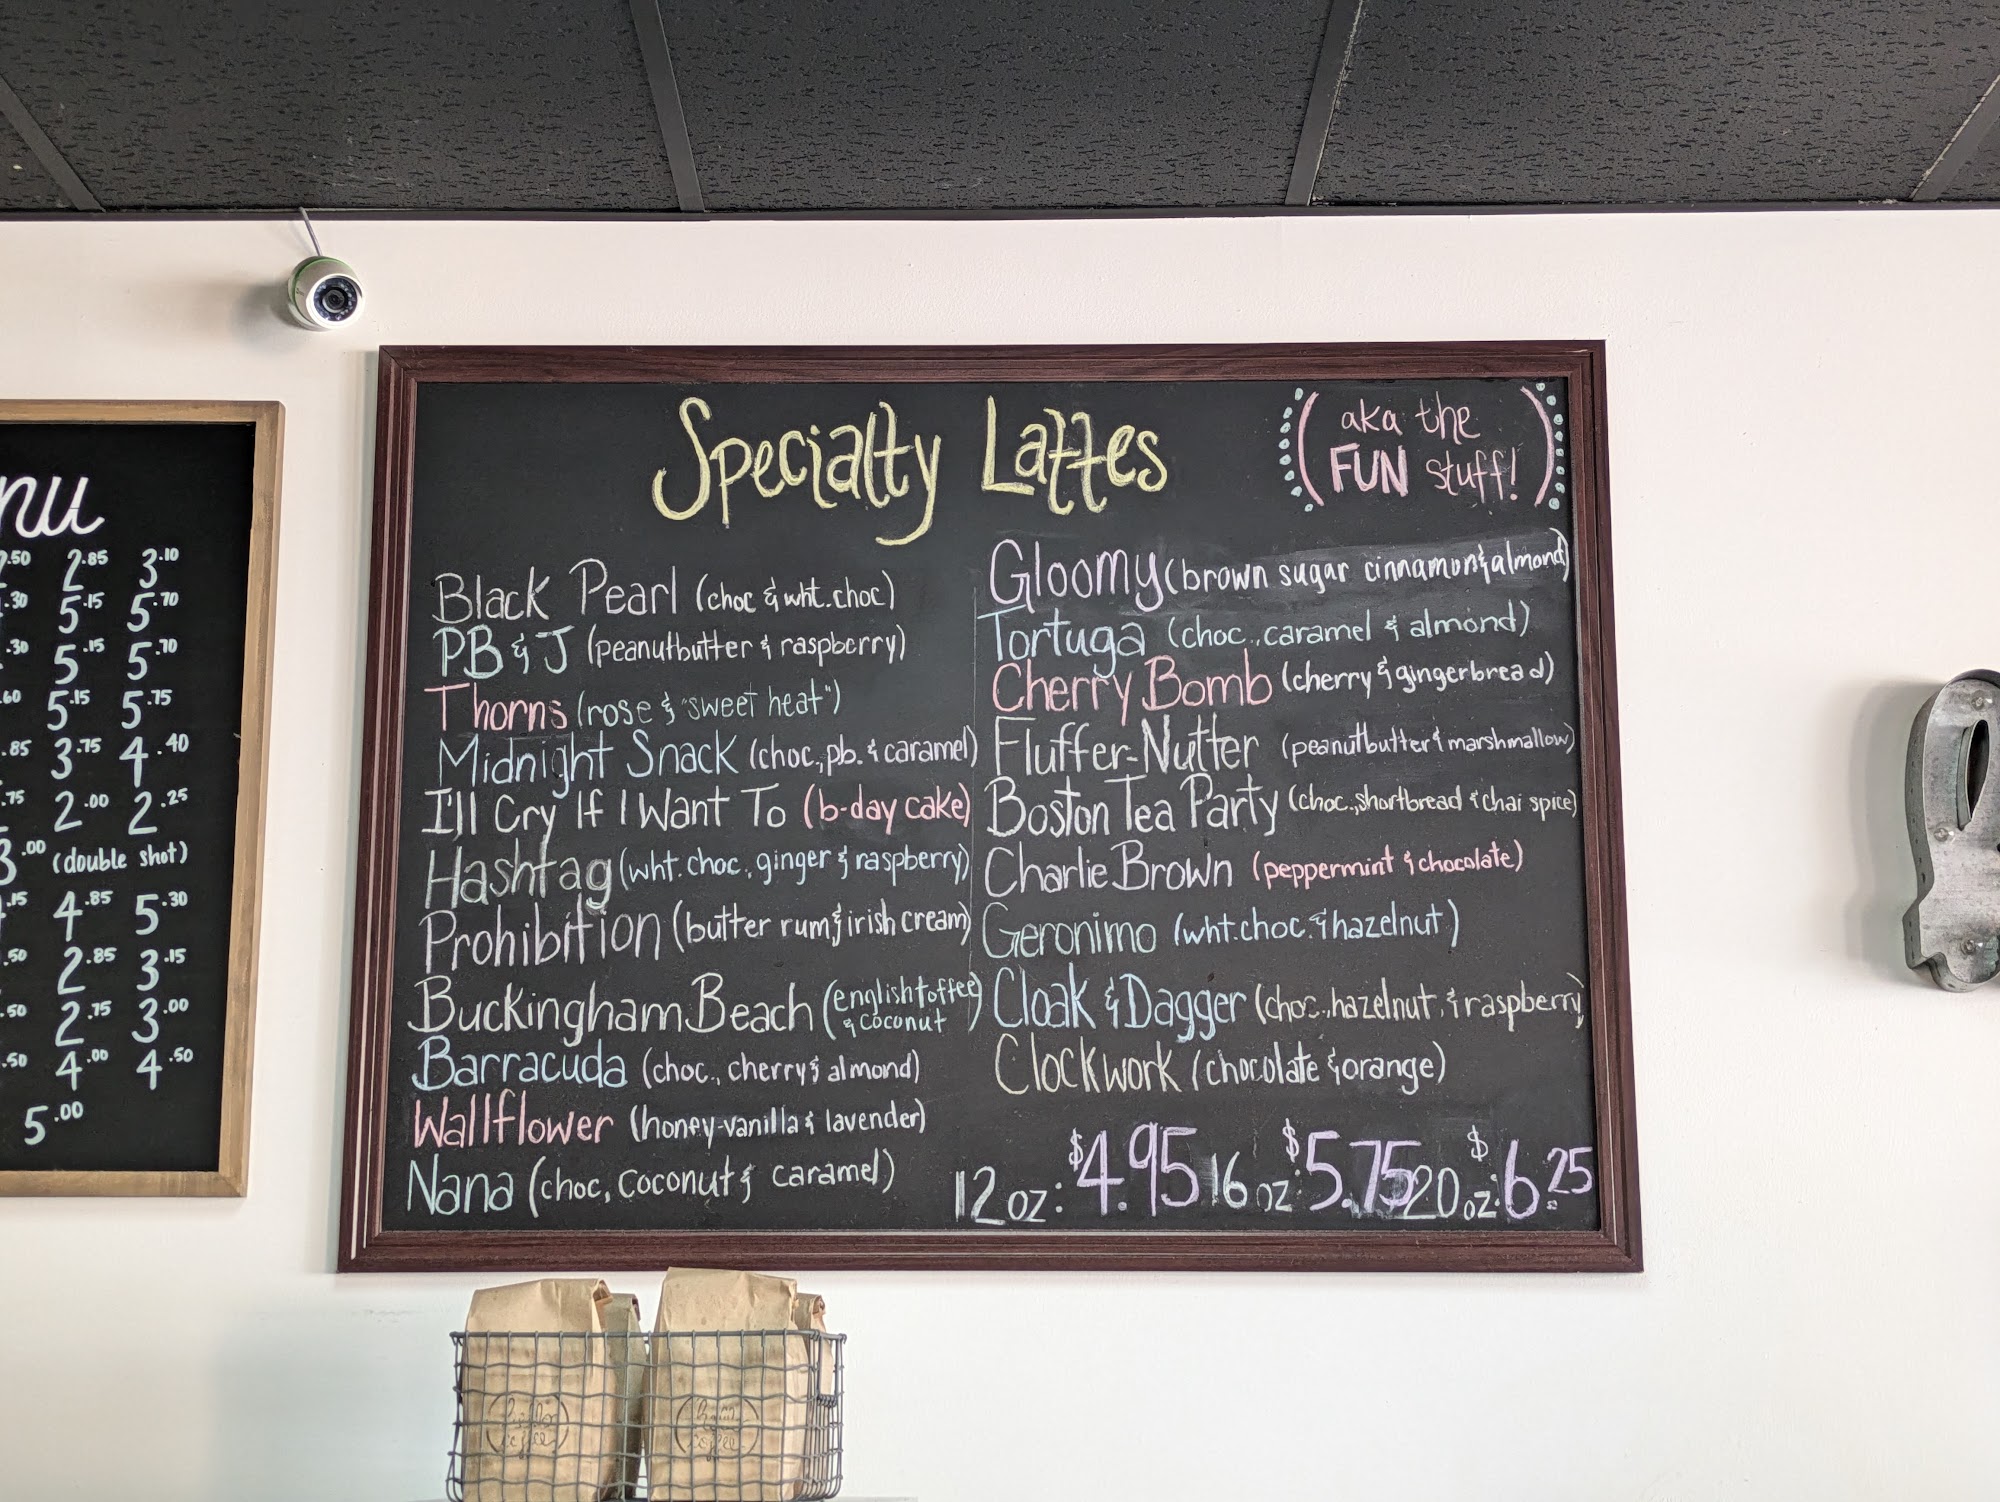 nu
.50 2.85 3.10
.30 5.15 5.70
.30 5.15 5.70
.60 5.15 5.75
.85 3.75 4.40
.75 2.00 2.25
3.00 (double shot)
.15 4.85 5.30
.50 2.85 3.15
.50 2.75 3.00
.50 4.00 4.50
5.00
Specialty Lattes
(aka the
FUN stuff!)
Black Pearl (choc & wht. choc)
PB & J (peanutbutter & raspberry)
Thorns (rose & "sweet heat")
Midnight Snack (choc., pb. & caramel)
I'll Cry If I Want To (b-day cake)
Hashtag (wht. choc., ginger & raspberry)
Prohibition (butter rum & irish cream)
Buckingham Beach (english toffee
& coconut)
Barracuda (choc., cherry & almond)
Wallflower (honey-vanilla & lavender)
Nana (choc, coconut & caramel)
Gloomy (brown sugar cinnamon & almond)
Tortuga (choc., caramel & almond)
Cherry Bomb (cherry & gingerbread)
Fluffer-Nutter (peanutbutter & marshmallow)
Boston Tea Party (choc., shortbread & chai spice)
Charlie Brown (peppermint & chocolate)
Geronimo (wht. choc. & hazelnut)
Cloak & Dagger (choc., hazelnut, & raspberry)
Clockwork (chocolate & orange)
12 oz: $4.95 16 oz: $5.75 20 oz: $6.25